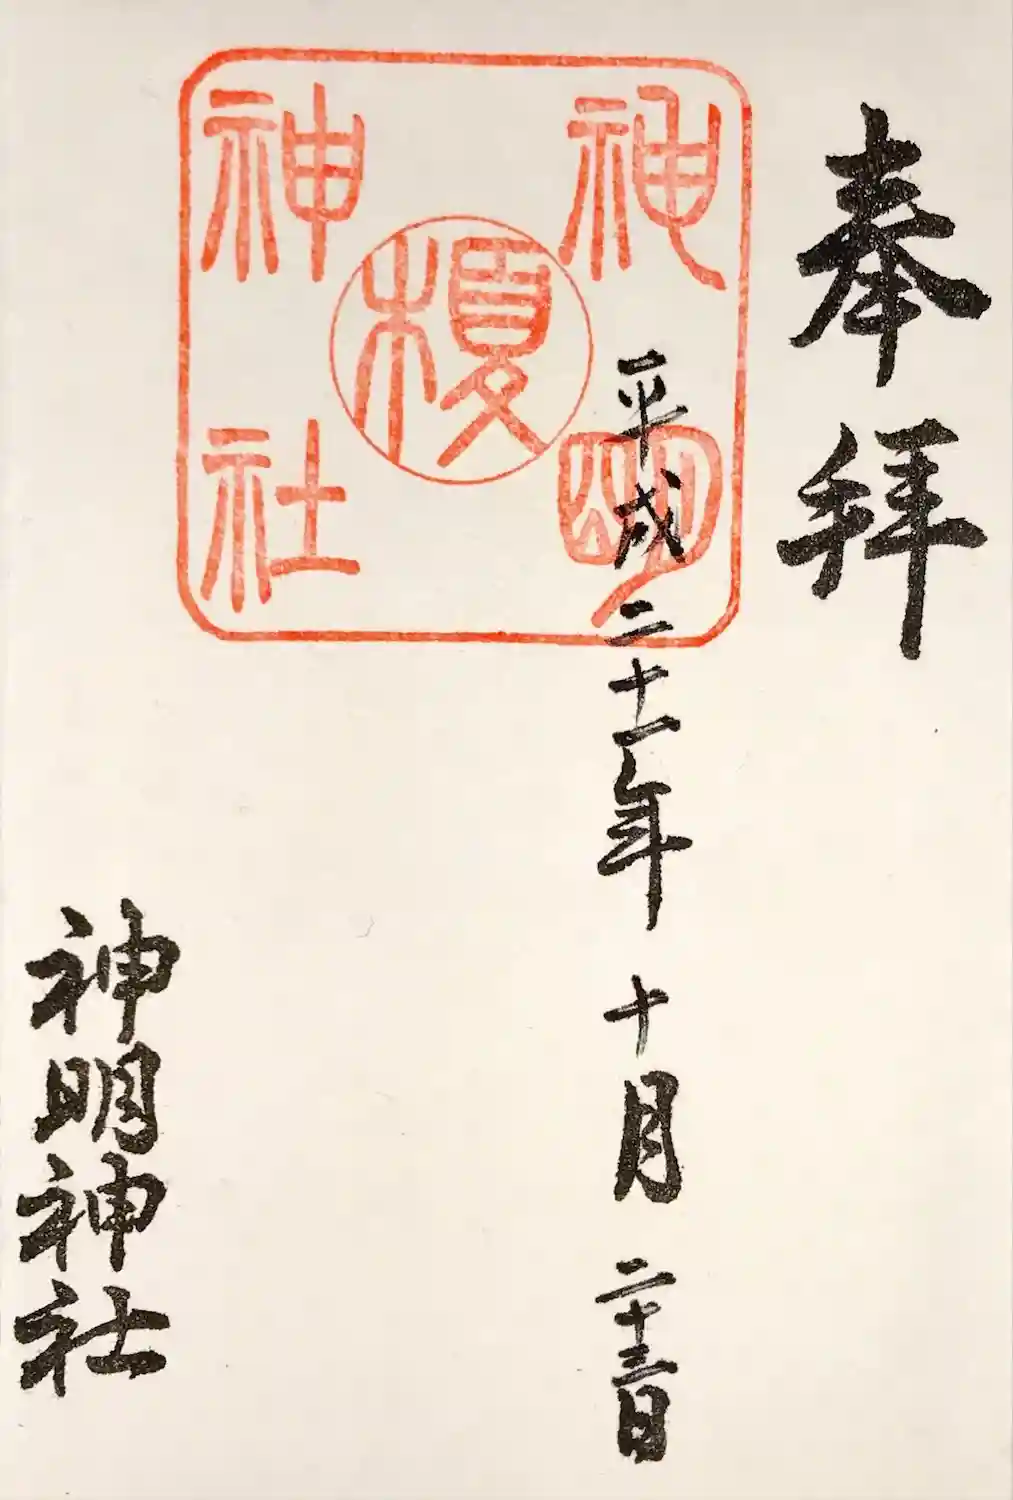 奉拝
平成二十一年 十月 二十三日
神明
榎
神社
神明神社